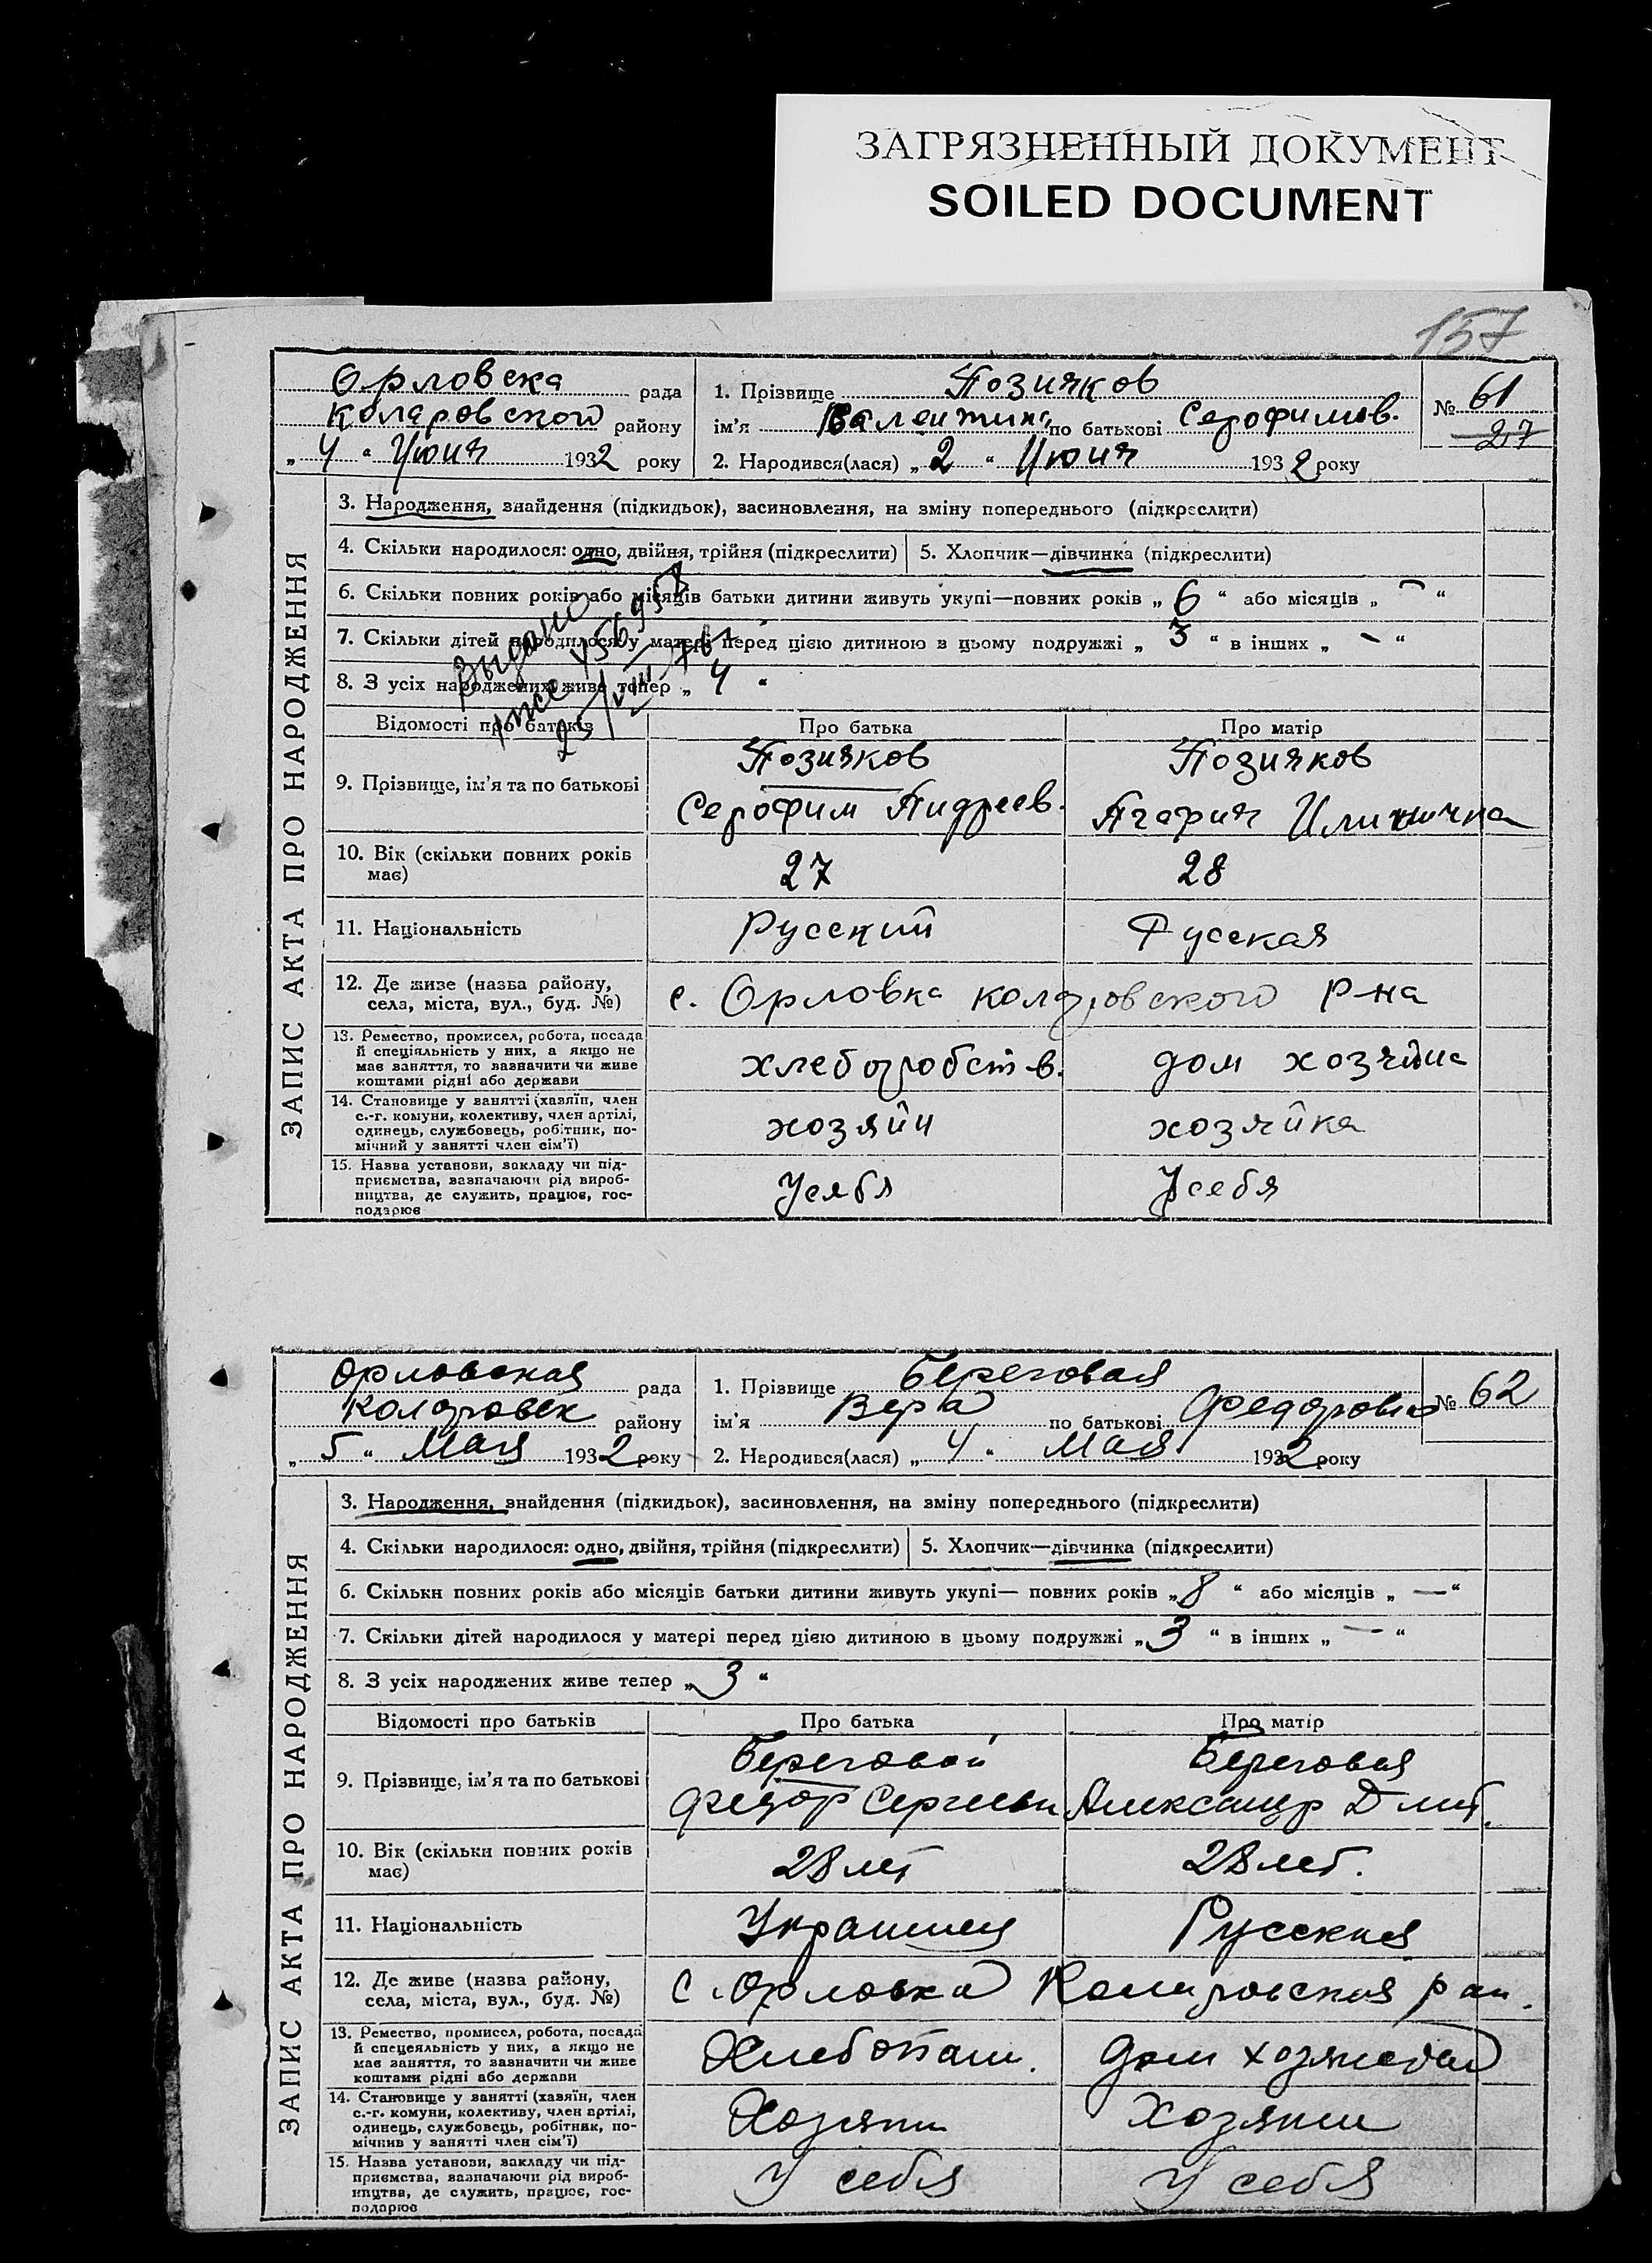 ЗАГРЯЗНЕННЫЙ ДОКУМЕНТ
SOILED DOCUMENT
157
Орловска рада
Коларовского району
„ 4 “ Июня 1932 року
1. Прізвище Позняков
ім'я Валентина по батькові Серофимов.
2. Народився(лася) „ 2 “ Июня 1932 року
№ 61
27
ЗАПИС АКТА ПРО НАРОДЖЕННЯ
3. Народження, знайдення (підкидьок), засиновлення, на зміну попереднього (підкреслити)
4. Скільки народилося: одно, двійня, трійня (підкреслити) 5. Хлопчик—дівчинка (підкреслити)
6. Скільки повних років або місяців батьки дитини живуть укупі—повних років „ 6 “ або місяців „ — “
7. Скільки дітей народилося у матері перед цією дитиною в цьому подружжі „ 3 “ в інших „ — “
8. З усіх народжених живе тепер „ 4 “
Выдано
Відомості про батьків Про батька Про матір
9. Прізвище, ім'я та по батькові
Позняков
Серофим Андреев.
Позняков
Агафия
10. Вік (скільки повних років має) 27 28
11. Національність Русский Русская
12. Де живе (назва району, села, міста, вул., буд. №) с. Орловка Коларовского р-на
13. Ремество, промисел, робота, посада
й спеціяльність у них, а якщо не
має заняття, то зазначити чи живе
коштами рідні або держави
хлеборобств. дом хозяйка
14. Становище у занятті (хазяїн, член
с.-г. комуни, колективу, член артілі,
одинець, службовець, робітник, по-
мічний у занятті член сім'ї)
хозяйн хозяйка
15. Назва установи, закладу чи під-
приємства, зазначаючи рід вироб-
ництва, де служить, працює, гос-
подарює
Усябя Усебя
Орловская рада
Коларовск району
„ 5 “ Мая 1932 року
1. Прізвище Береговая
ім'я Вера по батькові Федоровна
2. Народився(лася) „ 4 “ Мая 1932 року
№ 62
ЗАПИС АКТА ПРО НАРОДЖЕННЯ
3. Народження, знайдення (підкидьок), засиновлення, на зміну попереднього (підкреслити)
4. Скільки народилося: одно, двійня, трійня (підкреслити) 5. Хлопчик—дівчинка (підкреслити)
6. Скільки повних років або місяців батьки дитини живуть укупі— повних років „ 8 “ або місяців „ — “
7. Скільки дітей народилося у матері перед цією дитиною в цьому подружжі „ 3 “ в інших „ — “
8. З усіх народжених живе тепер „ 3 “
Відомості про батьків Про батька Про матір
9. Прізвище, ім'я та по батькові
Береговой
Федор Сергееви
Береговая
Александр Дмит.
10. Вік (скільки повних років має) 28 лет 28 лет.
11. Національність Украинец Русская
12. Де живе (назва району, села, міста, вул., буд. №) с. Орловка Коларовская рай.
13. Ремество, промисел, робота, посада
й спецеяльність у них, а якщо не
має заняття, то зазначити чи живе
коштами рідні або держави
Хлебопаш. дом
14. Становище у занятті (хазяїн, член
с.-г. комуни, колективу, член артілі,
одинець, службовець, робітник, по-
мічнив у занятті член сім'ї)
Хозяин Хозяин
15. Назва установи, закладу чи під-
приємства, зазначаючи рід вироб-
ництва, де служить, працює, гос-
подарює
У себя У себя